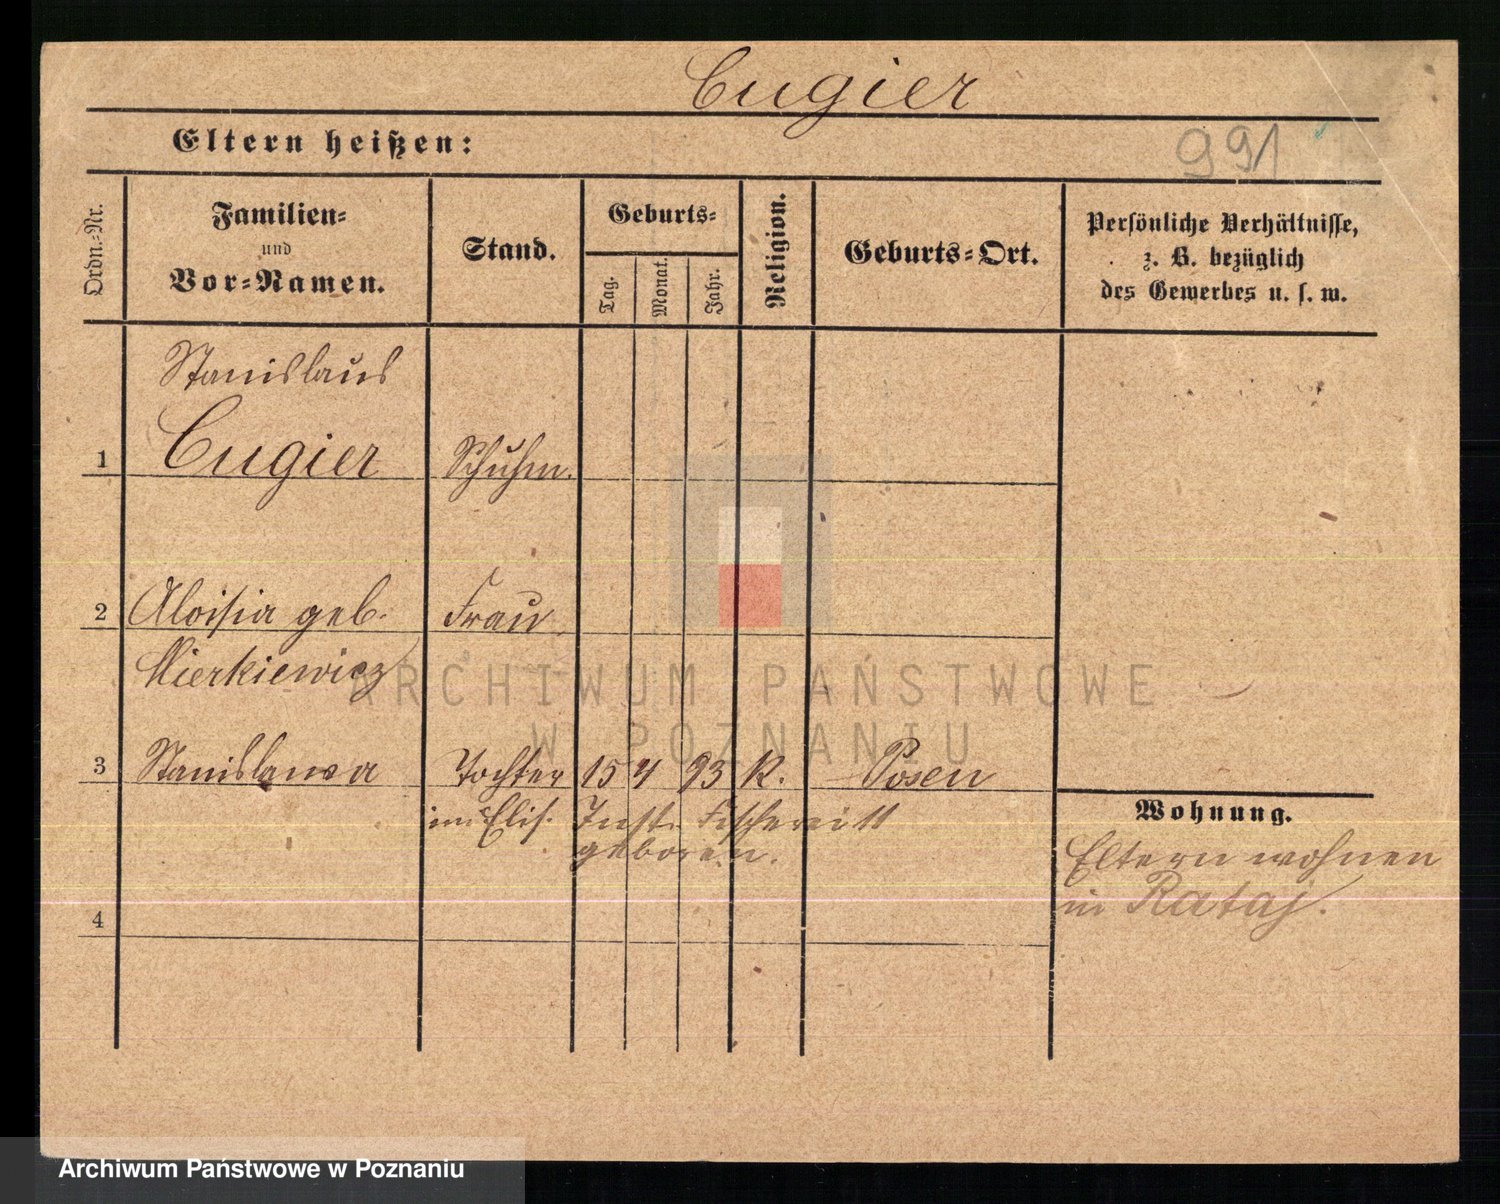 Cugier
Eltern heißen:
991
Ordn.-Nr.
Familien-
und
Vor-Namen.
Stand.
Geburts-
Tag.
Monat.
Jahr.
Religion.
Geburts-Ort.
Persönliche Verhältnisse,
z. B. bezüglich
des Gewerbes u. s. w.
Stanislaus
1 Cugier Schuhm.
2 Aloisia geb. Frau
Mierkiewicz
ARCHIWUM PAŃSTWOWE
W POZNANIU
3 Stanislawa Tochter 15 4 93 K. Posen
im Elis. Inst. Fischerei 11
geboren.
Wohnung.
Eltern wohnen
in Rataj.
4
Archiwum Państwowe w Poznaniu